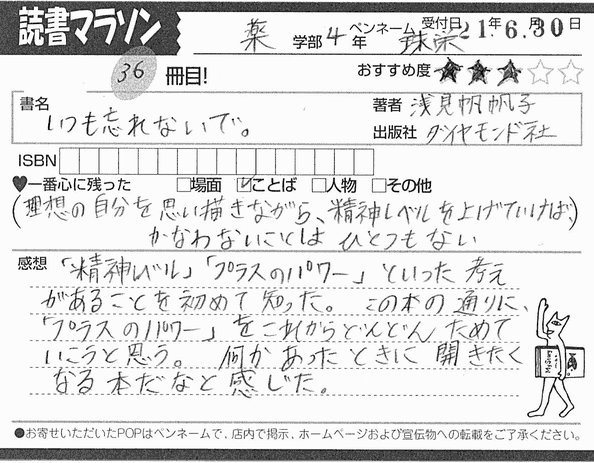 読書マラソン
薬 学部 4 年 ペンネーム 鎌栄 受付日 21.年6.月30日
36 冊目! おすすめ度 ★★★☆☆
書名 いつも忘れないで。
著者 浅見帆帆子
出版社 ダイヤモンド社
ISBN
♥一番心に残った □場面 ☑ことば □人物 □その他
(理想の自分を思い描きながら、精神レベルを上げていけば、
かなわないことは ひとつもない)
感想 「精神レベル」「プラスのパワー」といった考え
があることを初めて知った。この本の通りに、
「プラスのパワー」をこれからどんどんためて
いこうと思う。何かあったときに開きたく
なる本だなと感じた。
●お寄せいただいたPOPはペンネームで、店内で掲示、ホームページおよび宣伝物への転載をご了承ください。